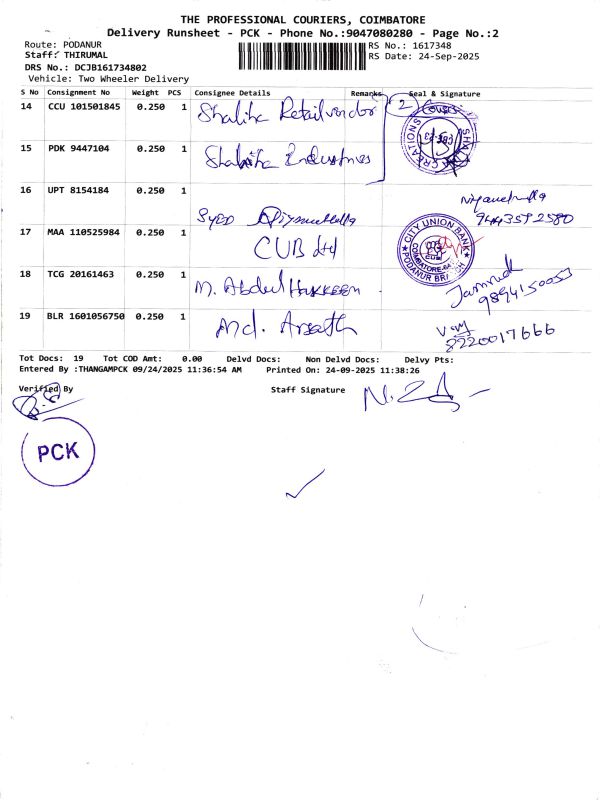 THE PROFESSIONAL COURIERS, COIMBATORE
Delivery Runsheet - PCK - Phone No.:9047080280 - Page No.:2
Route: PODANUR
RS No.: 1617348
Staff: THIRUMAL
RS Date: 24-Sep-2025
DRS No.: DCJB161734802
Vehicle: Two Wheeler Delivery
S No Consignment No Weight PCS Consignee Details Remarks Seal & Signature
14 CCU 101501845 0.250 1 Shaliha Retail vendor 2
15 PDK 9447104 0.250 1 Shaliha Industries
CREATIONS
16 UPT 8154184 0.250 1 Syed
9443592580
17 MAA 110525984 0.250 1 CUB Ltd
CITY UNION BANK
CUB
PODANUR BRANCH
18 TCG 20161463 0.250 1 M. Abdul Hakkeem
9894150053
19 BLR 1601056750 0.250 1 Md. Arsath
8220017666
Tot Docs: 19 Tot COD Amt: 0.00 Delvd Docs: Non Delvd Docs: Delvy Pts:
Entered By :THANGAMPCK 09/24/2025 11:36:54 AM Printed On: 24-09-2025 11:38:26
Verified By
Staff Signature
PCK